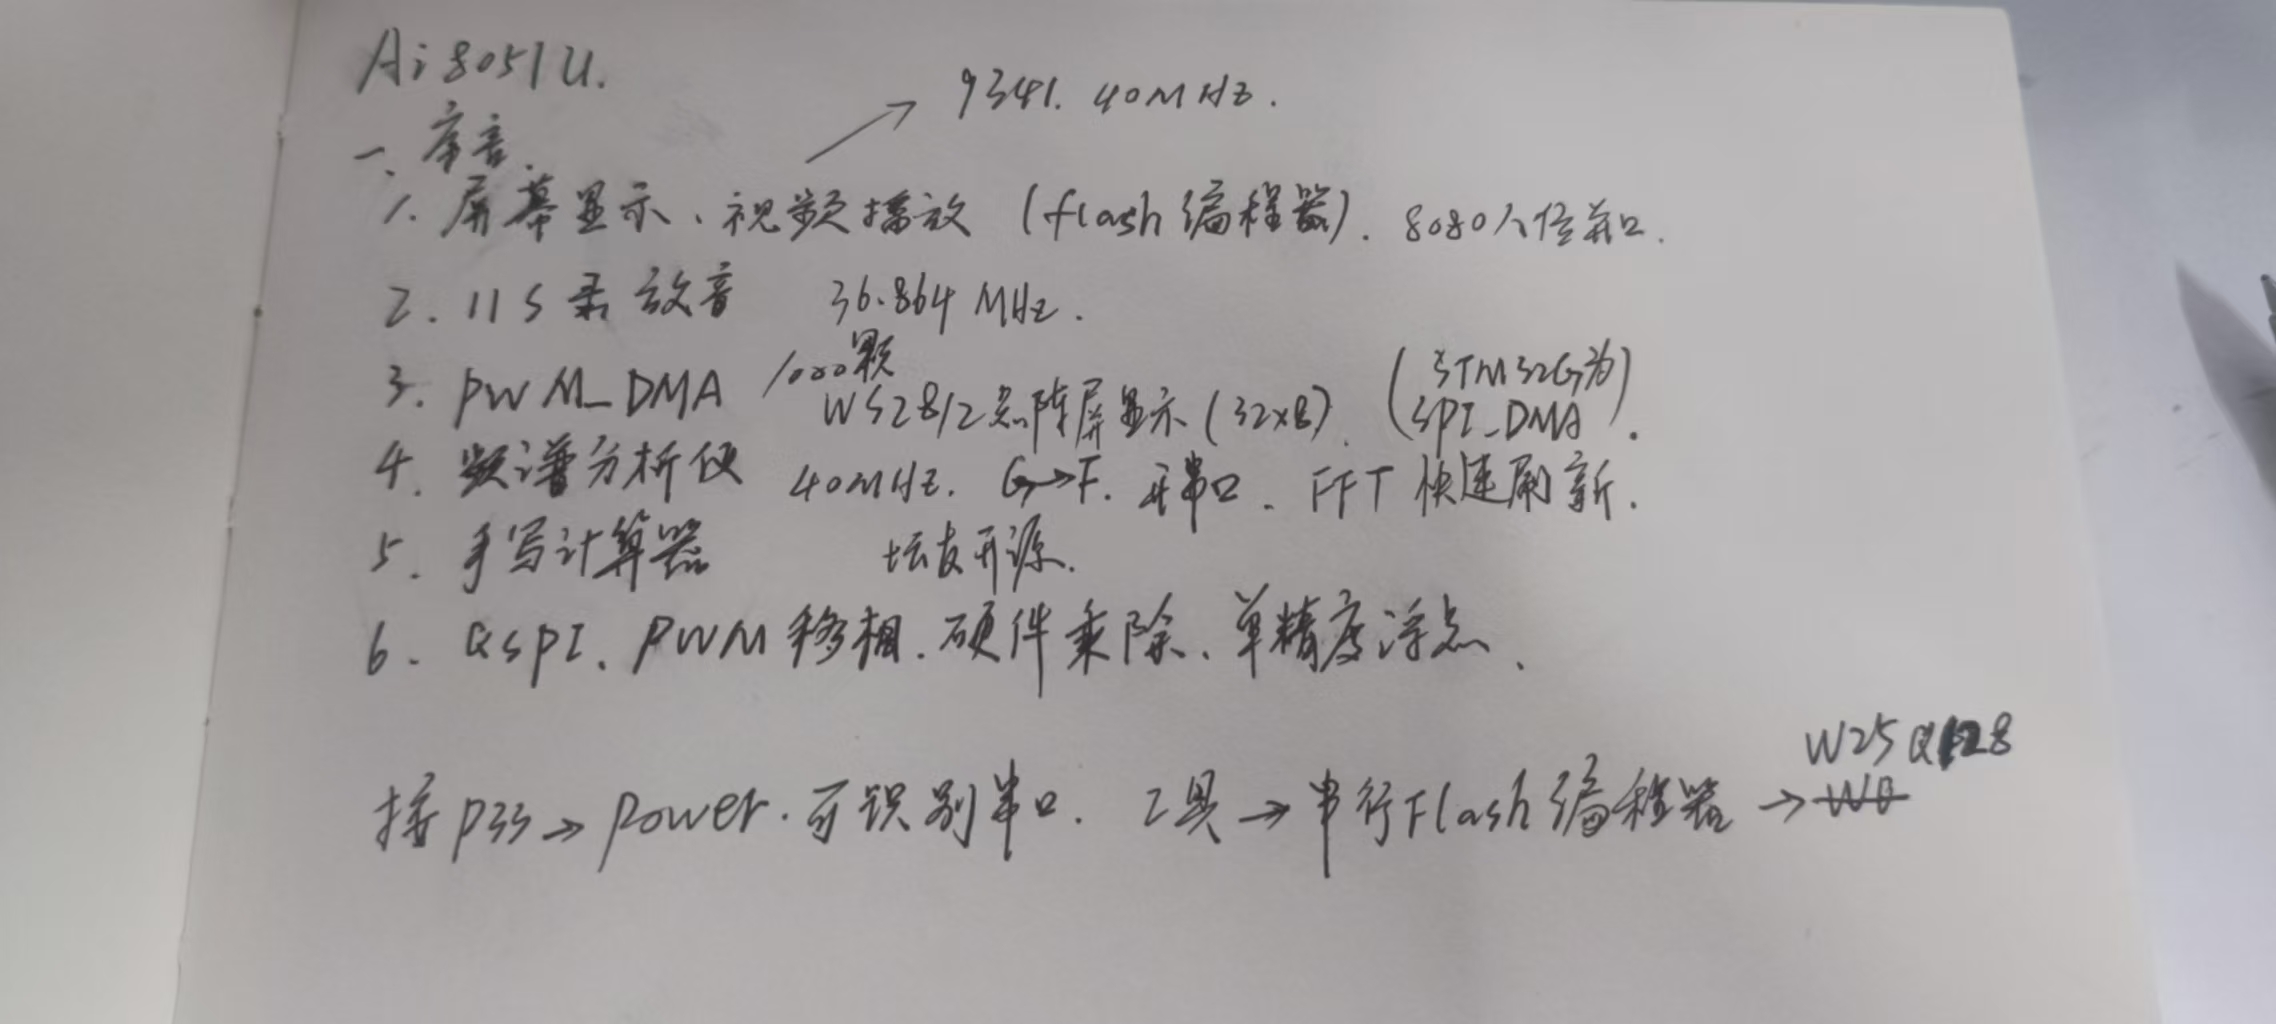 Ai8051U.
9341. 40MHz.
一、序言.
1. 屏幕显示、视频播放 (flash编程器). 8080八位并口.
2. IIS录放音 36.864 MHz.
3. PWM_DMA 1000颗 WS2812点阵屏显示(32×8). (STM32G为 SPI_DMA).
4. 频谱分析仪 40MHz. G→F. 开串口. FFT 快速刷新.
5. 手写计算器 坛友开源.
6. QSPI、PWM移相.硬件乘除、单精度浮点、
W25Q128
接P33→Power.可识别串口. 工具→串行Flash编程器→